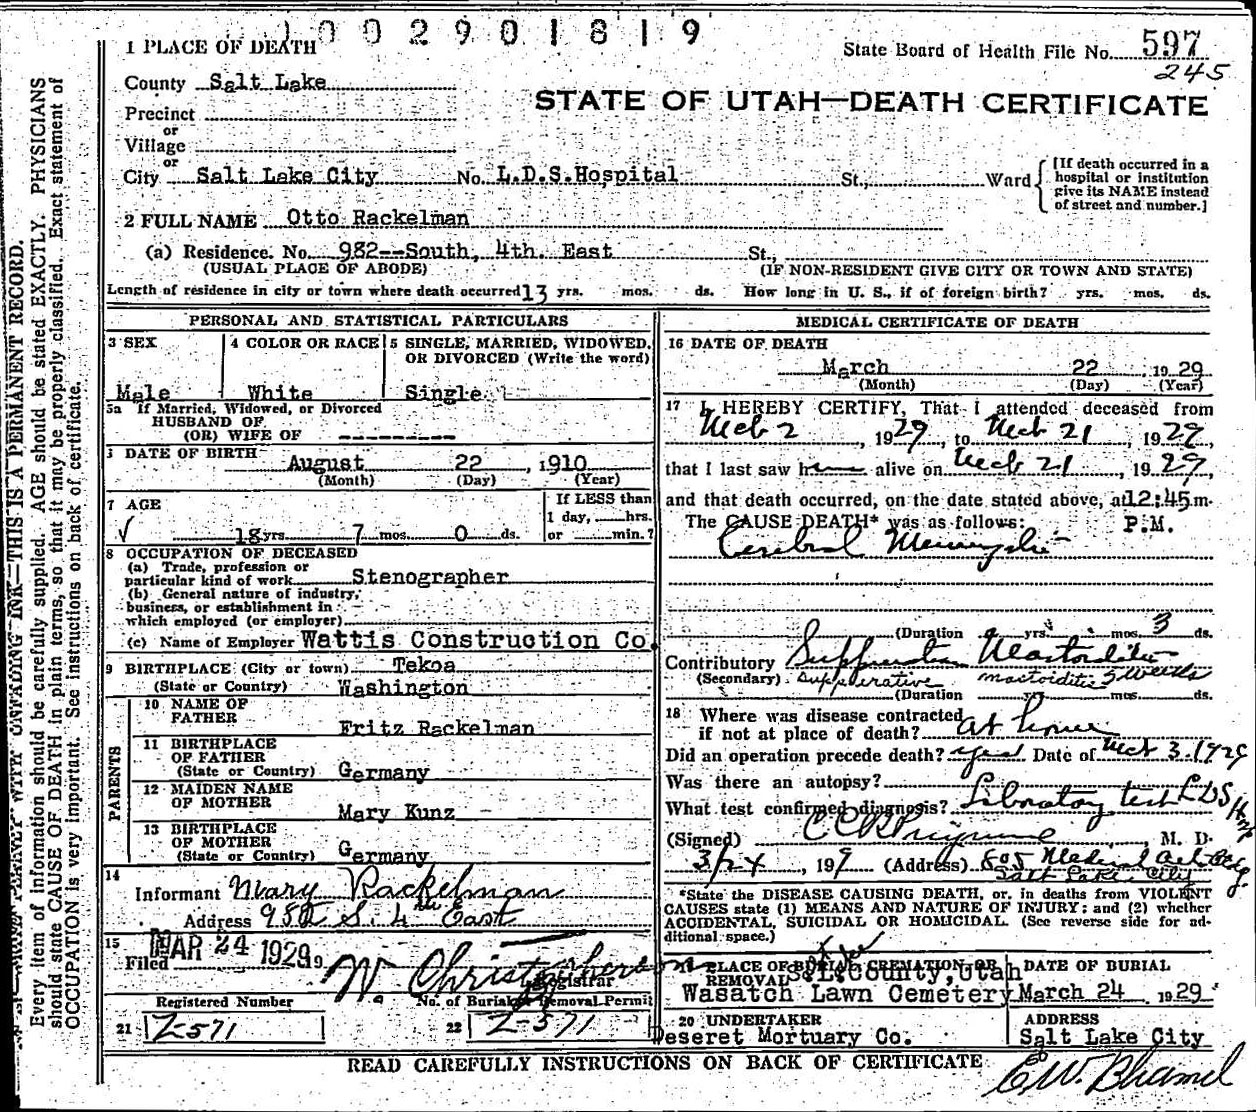 1 0 0 2 9 0 1 8 1 9
1 PLACE OF DEATH
State Board of Health File No. 597
245
County Salt Lake
STATE OF UTAH—DEATH CERTIFICATE
Precinct
or
Village
or
City Salt Lake City No. L.D.S.Hospital St., Ward
[If death occurred in a
hospital or institution
give its NAME instead
of street and number.]
2 FULL NAME Otto Rackelman
(a) Residence. No. 982--South, 4th. East St.,
(USUAL PLACE OF ABODE) (IF NON-RESIDENT GIVE CITY OR TOWN AND STATE)
Length of residence in city or town where death occurred 13 yrs. mos. ds. How long in U. S., if of foreign birth? yrs. mos. ds.
PERSONAL AND STATISTICAL PARTICULARS
3 SEX
Male
4 COLOR OR RACE
White
5 SINGLE, MARRIED, WIDOWED,
OR DIVORCED (Write the word)
Single
5a If Married, Widowed, or Divorced
HUSBAND OF
(OR) WIFE OF ---------
DATE OF BIRTH
August 22, 1910
(Month) (Day) (Year)
7 AGE
18 yrs. 7 mos. 0 ds.
If LESS than
1 day, hrs.
or min.?
8 OCCUPATION OF DECEASED
(a) Trade, profession or
particular kind of work Stenographer
(b) General nature of industry,
business, or establishment in
which employed (or employer)
(c) Name of Employer Wattis Construction Co.
9 BIRTHPLACE (City or town) Tekoa
(State or Country) Washington
PARENTS
10 NAME OF
FATHER Fritz Rackelman
11 BIRTHPLACE
OF FATHER
(State or Country) Germany
12 MAIDEN NAME
OF MOTHER
Mary Kunz
13 BIRTHPLACE
OF MOTHER
(State or Country) Germany
14
Informant Mary Rackelman
Address 982 S. 4th East
15
Filed MAR 24 1929 19
W. Christopherson
Registrar
Registered Number
21 Z-571
No. of Burial or Removal Permit
22 Z-571
MEDICAL CERTIFICATE OF DEATH
16 DATE OF DEATH
March 22 1929
(Month) (Day) (Year)
17 I HEREBY CERTIFY, That I attended deceased from
Mch 2, 1929, to Mch 21, 1929,
that I last saw him alive on Mch 21, 1929,
and that death occurred, on the date stated above, at 12:45 m.
The CAUSE DEATH* was as follows: P.M.
Cerebral
(Duration yrs. mos. 3 ds.
Contributory Suppurative Mastoiditis
(Secondary) suppurative mastoiditis 3 weeks
(Duration yrs. mos. ds.
18 Where was disease contracted
if not at place of death? at home
Did an operation precede death? yes Date of Mch 3. 1929
Was there an autopsy?
What test confirmed diagnosis? Laboratory test LDS Hosp
(Signed) M. D.
3/24, 1929 (Address) 805 Medical Art Bldg.
Salt Lake City
*State the DISEASE CAUSING DEATH, or, in deaths from VIOLENT
CAUSES state (1) MEANS AND NATURE OF INJURY; and (2) whether
ACCIDENTAL, SUICIDAL OR HOMICIDAL. (See reverse side for ad-
ditional space.)
19 PLACE OF BURIAL, CREMATION OR
REMOVAL S.L. County, Utah
Wasatch Lawn Cemetery
DATE OF BURIAL
March 24 1929
20 UNDERTAKER
Deseret Mortuary Co.
ADDRESS
Salt Lake City
READ CAREFULLY INSTRUCTIONS ON BACK OF CERTIFICATE
Every item of information should be carefully supplied. AGE should be stated EXACTLY. PHYSICIANS
should state CAUSE OF DEATH in plain terms, so that it may be properly classified. Exact statement of
OCCUPATION is very important. See instructions on back of certificate.
INK—THIS IS A PERMANENT RECORD.